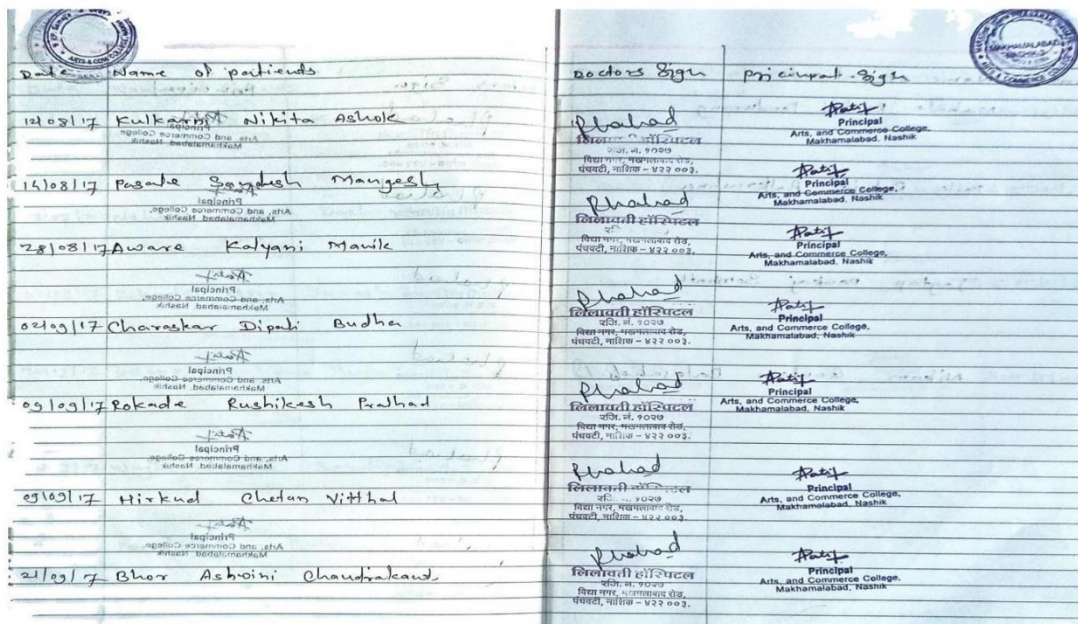 ARTS & COM COLLEGE
MAKHMALABAD
ARTS & COMMERCE COLLEGE
Date Name of patiends Doctors Sign pricinpal Sign
12/08/17 Kulkarni Nikita Ashok
Phahad
लिलावती हॉस्पिटल
रजि. नं. १०२७
विद्या नगर, मखमलाबाद रोड,
पंचवटी, नाशिक – ४२२ ००३.
Patil
Principal
Arts, and Commerce College,
Makhamalabad, Nashik
14/08/17 Pasale Sandesh Mangesh
Phahad
लिलावती हॉस्पिटल
विद्या नगर, मखमलाबाद रोड,
पंचवटी, नाशिक – ४२२ ००३.
Patil
Principal
Arts, and Commerce College,
Makhamalabad, Nashik
28/08/17 Aware Kalyani Manik
Phahad
लिलावती हॉस्पिटल
रजि. नं. १०२७
विद्या नगर, मखमलाबाद रोड,
पंचवटी, नाशिक – ४२२ ००३.
Patil
Principal
Arts, and Commerce College,
Makhamalabad, Nashik
02/09/17 Charaskar Dipali Budha
Phahad
लिलावती हॉस्पिटल
रजि. नं. १०२७
विद्या नगर, मखमलाबाद रोड,
पंचवटी, नाशिक – ४२२ ००३.
Patil
Principal
Arts, and Commerce College,
Makhamalabad, Nashik
09/09/17 Rokade Rushikesh Pralhad
Phahad
लिलावती हॉस्पिटल
१०२७
विद्या नगर, मखमलाबाद रोड,
पंचवटी, नाशिक – ४२२ ००३.
Patil
Principal
Arts, and Commerce College,
Makhamalabad, Nashik
09/09/17 Hirkud Chetan Vitthal
Phahad
लिलावती हॉस्पिटल
रजि. नं. १०२७
विद्या नगर, मखमलाबाद रोड,
पंचवटी, नाशिक – ४२२ ००३.
Patil
Principal
Arts, and Commerce College,
Makhamalabad, Nashik
21/09/17 Bhor Ashvini Chandrakant
Patil
Principal
Arts, and Commerce College,
Makhamalabad, Nashik